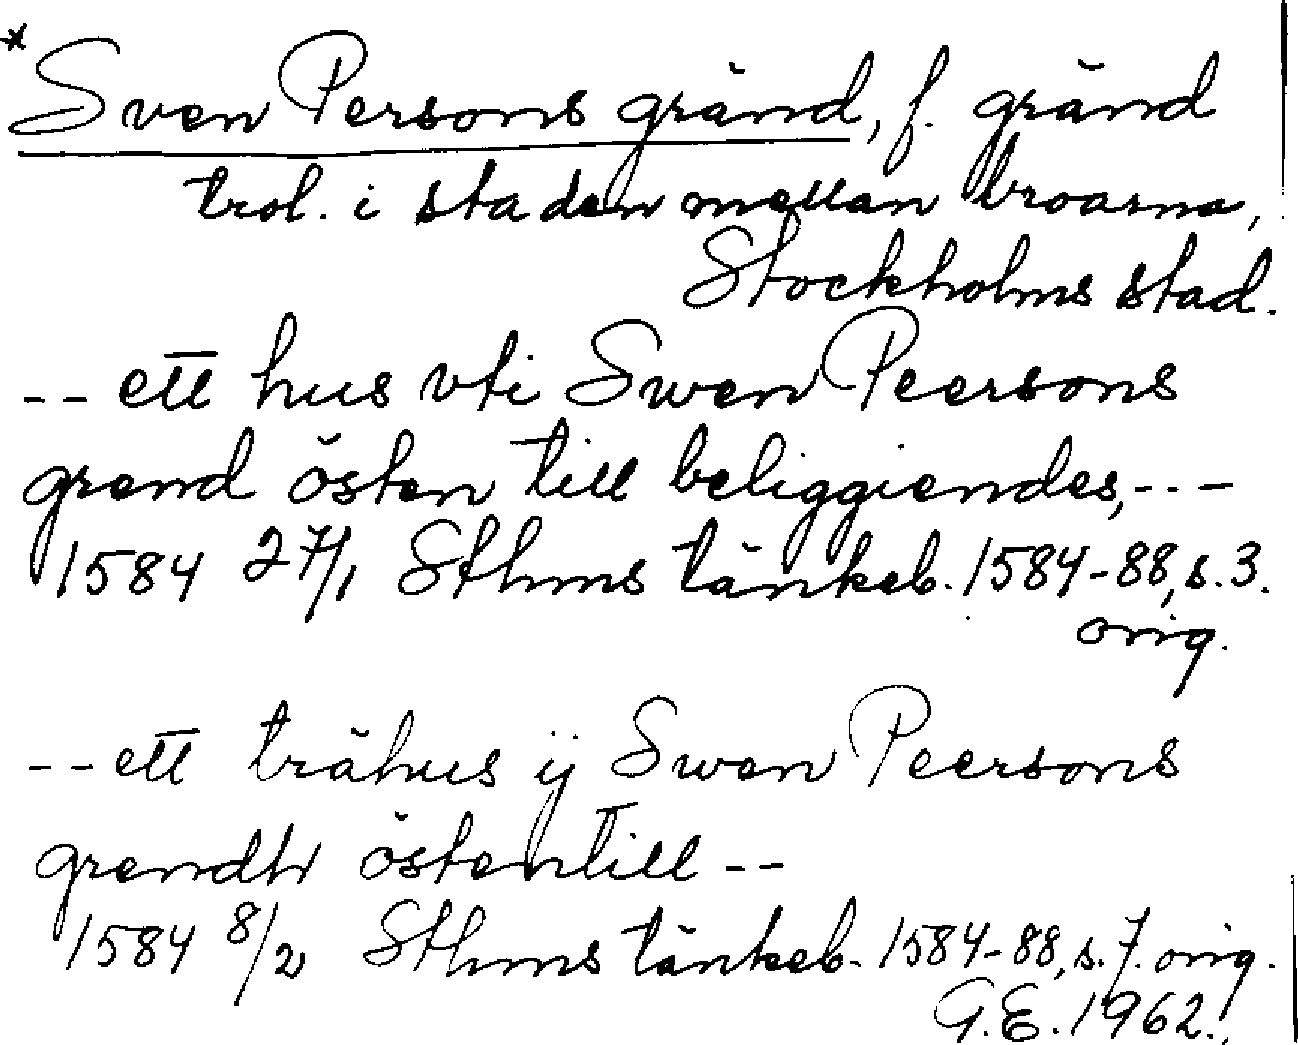 * Sven Persons gränd, f. gränd
trol. i staden mellan broarna,
Stockholms stad.
-- ett hus vti Swen Peersons
grend östen till beliggiendes, ---
1584 27/1 Sthms tänkeb. 1584-88, s. 3.
orig.
-- ett trähus ij Swen Peersons
grendh östentill --
1584 8/2 Sthms tänkeb. 1584-88, s. 7. orig.
G.E. 1962.